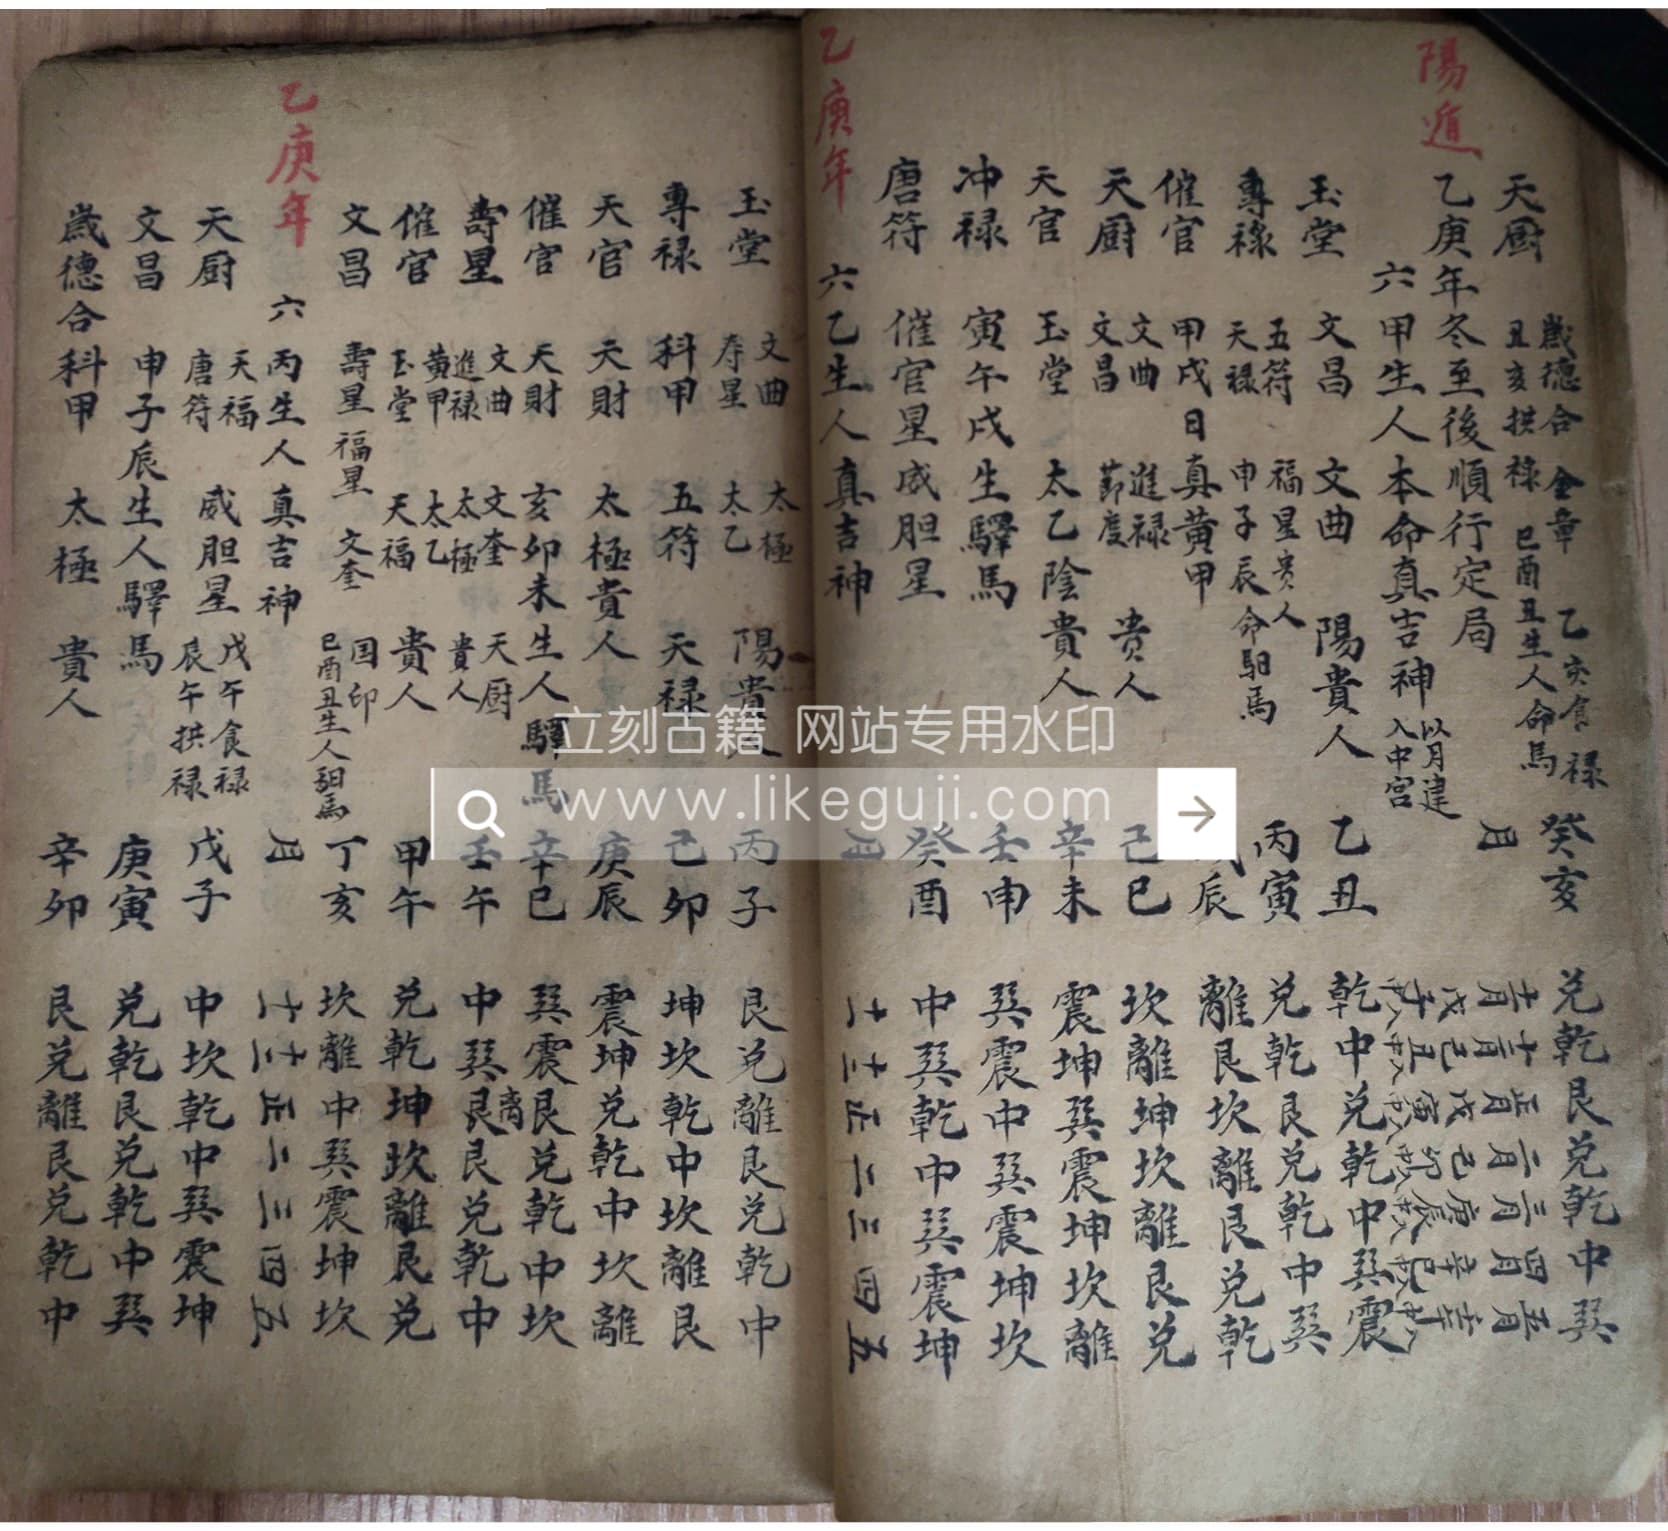 陽遁
天厨 歲德合 丑亥拱禄 金章 巳酉丑生人命馬 乙亥食禄 癸亥 兑乾艮兑乾中巽
乙庚年冬至後順行定局 月 十一月 十二月 正月 二月 三月 四月 五月
六甲生人本命真吉神 以月建入中宫 戊子 己丑 戊寅 己卯 庚辰 辛巳
玉堂 文昌 文曲 陽貴人 乙丑 乾中兑乾中巽震
專祿 五符 天禄 福星贵人 申子辰命馹馬 丙寅 兑乾艮兑乾中巽
催官 甲戌日真黄甲 辰 離艮坎離艮兑乾
天厨 文曲 文昌 進禄 節度 贵人 己巳 坎離坤坎離艮兑
天官 玉堂 太乙陰貴人 辛未 震坤巽震坤坎離
冲禄 寅午戌生驛馬 壬申 巽震中巽震坤坎
唐符 催官星 威胆星 癸酉 中巽乾中巽震坤
乙庚年
六乙生人真吉神 月 十一 十二 正 二 三 四 五
玉堂 文曲 寿星 太極 太乙 陽貴人 丙子 艮兑離艮兑乾中
專禄 科甲 五符 天禄 己卯 坤坎乾中坎離艮
天官 天財 太極貴人 庚辰 震坤兑乾中坎離
催官 天財 亥卯未生人驛馬 辛巳 巽震艮兑乾中坎
壽星 文曲 進禄 文奎 太極 天厨 貴人 壬午 中巽艮離艮兑乾中
催官 黄甲 玉堂 太乙 天福 貴人 甲午 兑乾坤坎離艮兑
文昌 壽星 福星 文奎 国印 巳酉丑生人馹馬 丁亥 坎離中巽震坤坎
乙庚年
六丙生人真吉神 月 十一 十二 正 二 三 四 五
天厨 天福 唐符 威胆星 戊午食禄 辰午拱禄 戊子 中坎乾中巽震坤
文昌 申子辰生人驛馬 庚寅 兑乾艮兑乾中巽
歲德合 科甲 太極 貴人 辛卯 艮兑離艮兑乾中
立刻古籍 网站专用水印
www.likeguji.com